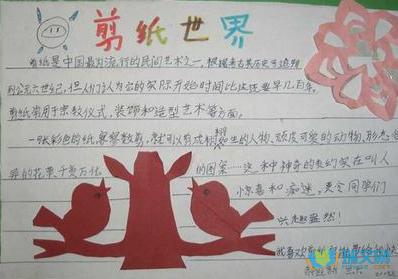 剪纸世界
剪纸是中国最为流行的民间艺术之一,根据考古其历史可追溯
到公元六世纪,但人们认为它的实际开始时间比这还要早几百年。
剪纸常用于宗教仪式,装饰和造型艺术等方面。
一张彩色的纸,寥寥数剪,就可以剪成栩栩如生的人物,顽皮可爱的动物,形态
的花草千变万化 的图案……这种神奇的美的实在叫人
惊喜和痴迷,更令同学们
兴趣盎然!
我喜欢